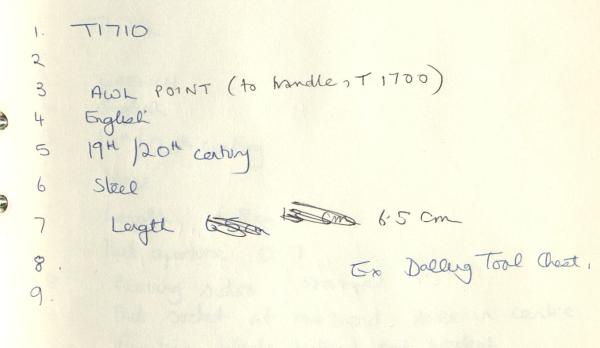 1. T1710
2
3 AWL POINT (to handle, T1700)
4 English
5 19th/20th century
6 Steel
7 Length 6.5 cm
8. Ex Dalling Tool Chest.
9.